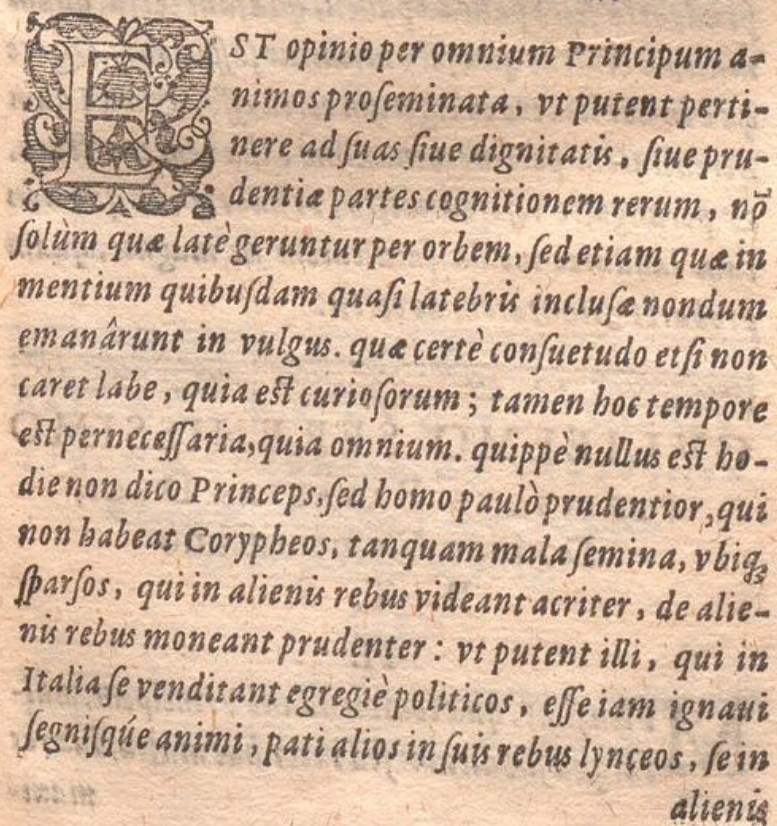 EST opinio per omnium Principum a-
nimos proſeminata, vt putent perti-
nere ad ſuas ſiue dignitatis, ſiue pru-
dentiæ partes cognitionem rerum, nō
ſolùm quæ latè geruntur per orbem, ſed etiam quæ in
mentium quibuſdam quaſi latebris incluſæ nondum
emanârunt in vulgus. quæ certè conſuetudo etſi non
caret labe, quia eſt curioſorum; tamen hoc tempore
eſt perneceſſaria, quia omnium. quippè nullus eſt ho-
die non dico Princeps, ſed homo paulò prudentior, qui
non habeat Corypheos, tanquam mala ſemina, vbiq́;
ſparſos, qui in alienis rebus videant acriter, de alie-
nis rebus moneant prudenter: vt putent illi, qui in
Italia ſe venditant egregiè politicos, eſſe iam ignaui
ſegniſqúe animi, pati alios in ſuis rebus lynceos, ſe in
alienis